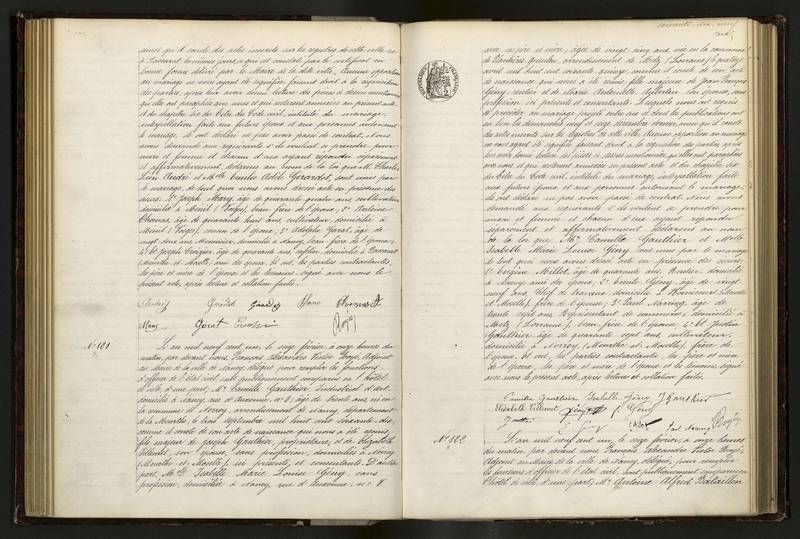 ainsi qu'il conste des actes inscrits sur les registres de cette ville et
à Laxou les mêmes jours, ce qui est constaté par le certificat en
bonne forme délivré par le Maire de la dite ville. Aucune opposition
au mariage ne nous ayant été signifiée, faisant droit à la réquisition
des parties, après leur avoir donné lecture des pièces ci dessus mentionnées
qu'elles ont paraphées avec nous et qui resteront annexées au présent acte
et du chapitre six du titre du Code civil, intitulé du mariage,
interpellation faite aux futurs époux et aux personnes autorisant
le mariage, ils ont déclaré ne pas avoir passé de contrat. Nous
avons demandé aux requérants s'ils veulent se prendre pour
mari et femme et chacun d'eux ayant répondu séparément
et affirmativement, déclarons au nom de la loi que Mr Charles
Léon André et Melle Girardot, sont unis par
le mariage, de tout quoi nous avons dressé acte en présence des
sieurs: 1° Joseph Mary, âgé de quarante quatre ans, cultivateur
domicilié à Ménil (Vosges), beau frère de l'époux; 2° Antoine
Thomas, âgé de quarante huit ans, cultivateur, domicilié à
Ménil (Vosges), cousin de l'époux; 3° Adolphe Garat, âgé de
vingt deux ans, Menuisier, domicilié à Nancy, beau frère de l'épouse;
4° et Joseph âgé de quarante ans, domicilié à
(Meurthe et Moselle), ami des époux, et ont, les parties contractantes,
les père et mère de l'épouse et les témoins, signé avec nous le
présent acte, après lecture et collation faites.
André Girardot Thomas A
Mary Garat
No 161
L'an mil neuf cent un, le seize février, à onze heures du
matin, par devant nous François Alexandre Victor Adjoint
au Maire de la ville de Nancy, délégué pour remplir les fonctions
d'officier de l'état civil, sont publiquement comparus en l'hôtel
de ville, d'une part, Mr Camille Gauthier, Industriel d'art,
domicilié à Nancy, rue d'Auxonne, no 8, âgé de trente ans, né en
la commune de Norroy, arrondissement de Nancy, département
de la Meurthe, le trois septembre mil huit cent soixante dix,
comme il conste de son acte de naissance qui nous a été remis,
fils majeur de Joseph Gauthier, propriétaire, et de Elisabeth
Villemet, son épouse, sans profession, domiciliés à Norroy
(Meurthe et Moselle), ici présents et consentants. D'autre
part, Melle Isabelle Marie Louise Gény, sans
profession, domiciliée à Nancy, rue d'Auxonne, no 8,
soixante dix neuf
avec ses père et mère, âgée de vingt cinq ans, née en la commune
de Plantières Queuleu, arrondissement de Metz (Lorraine), le quatre
avril mil huit cent soixante quinze, comme il conste de son acte
de naissance qui nous a été remis, fille majeure de Jean François
Gény, rentier et de Marie Antoinette son épouse, sans
profession, ici présents et consentants. Lesquels nous ont requis
de procéder au mariage projeté entre eux et dont les publications ont
eu lieu les dimanches neuf et seize décembre dernier, ainsi qu'il conste
des actes inscrits sur les registres de cette ville. Aucune opposition au mariage
ne nous ayant été signifiée, faisant droit à la réquisition des parties, après
leur avoir donné lecture des pièces ci dessus mentionnées, qu'elles ont paraphées
avec nous et qui resteront annexées au présent acte, et du chapitre six
du titre du Code civil, intitulé du mariage, interpellation faite
aux futurs époux et aux personnes autorisant le mariage,
ils ont déclaré ne pas avoir passé de contrat. Nous avons
demandé aux requérants s'ils veulent se prendre pour
mari et femme et chacun d'eux ayant répondu
séparément et affirmativement, déclarons au nom
de la loi que Mr Camille Gauthier et Melle
Isabelle Marie Louise Gény, sont unis par le mariage
de tout quoi nous avons dressé acte en présence des sieurs:
1° Millet, âgé de quarante ans, Rentier, domicilié
à Nancy, ami des époux; 2° Emile Gény, âgé de vingt
neuf ans, Chef de travaux, domicilié à (Meurthe
et Moselle), frère de l'épouse; 3° Paul âgé de
trente sept ans, Représentant de commerce, domicilié à
Metz (Lorraine), beau frère de l'épouse; 4° et Justin
Gauthier, âgé de quarante sept ans, cultivateur,
domicilié à Norroy, (Meurthe et Moselle), frère de
l'époux, et ont, les parties contractantes, les père et mère
de l'époux, les père et mère de l'épouse et les témoins, signé
avec nous le présent acte, après lecture et collation faites.
Camille Gauthier Isabelle Gény J Gauthier
Elisabeth Villemet Gény
No 162
L'an mil neuf cent un, le seize février, à onze heures
du matin, par devant nous François Alexandre Victor
Adjoint au Maire de la ville de Nancy, délégué pour remplir
les fonctions d'officier de l'état civil, sont publiquement comparus en
l'hôtel de ville, d'une part, Mr Antoine Alfred Bataillon